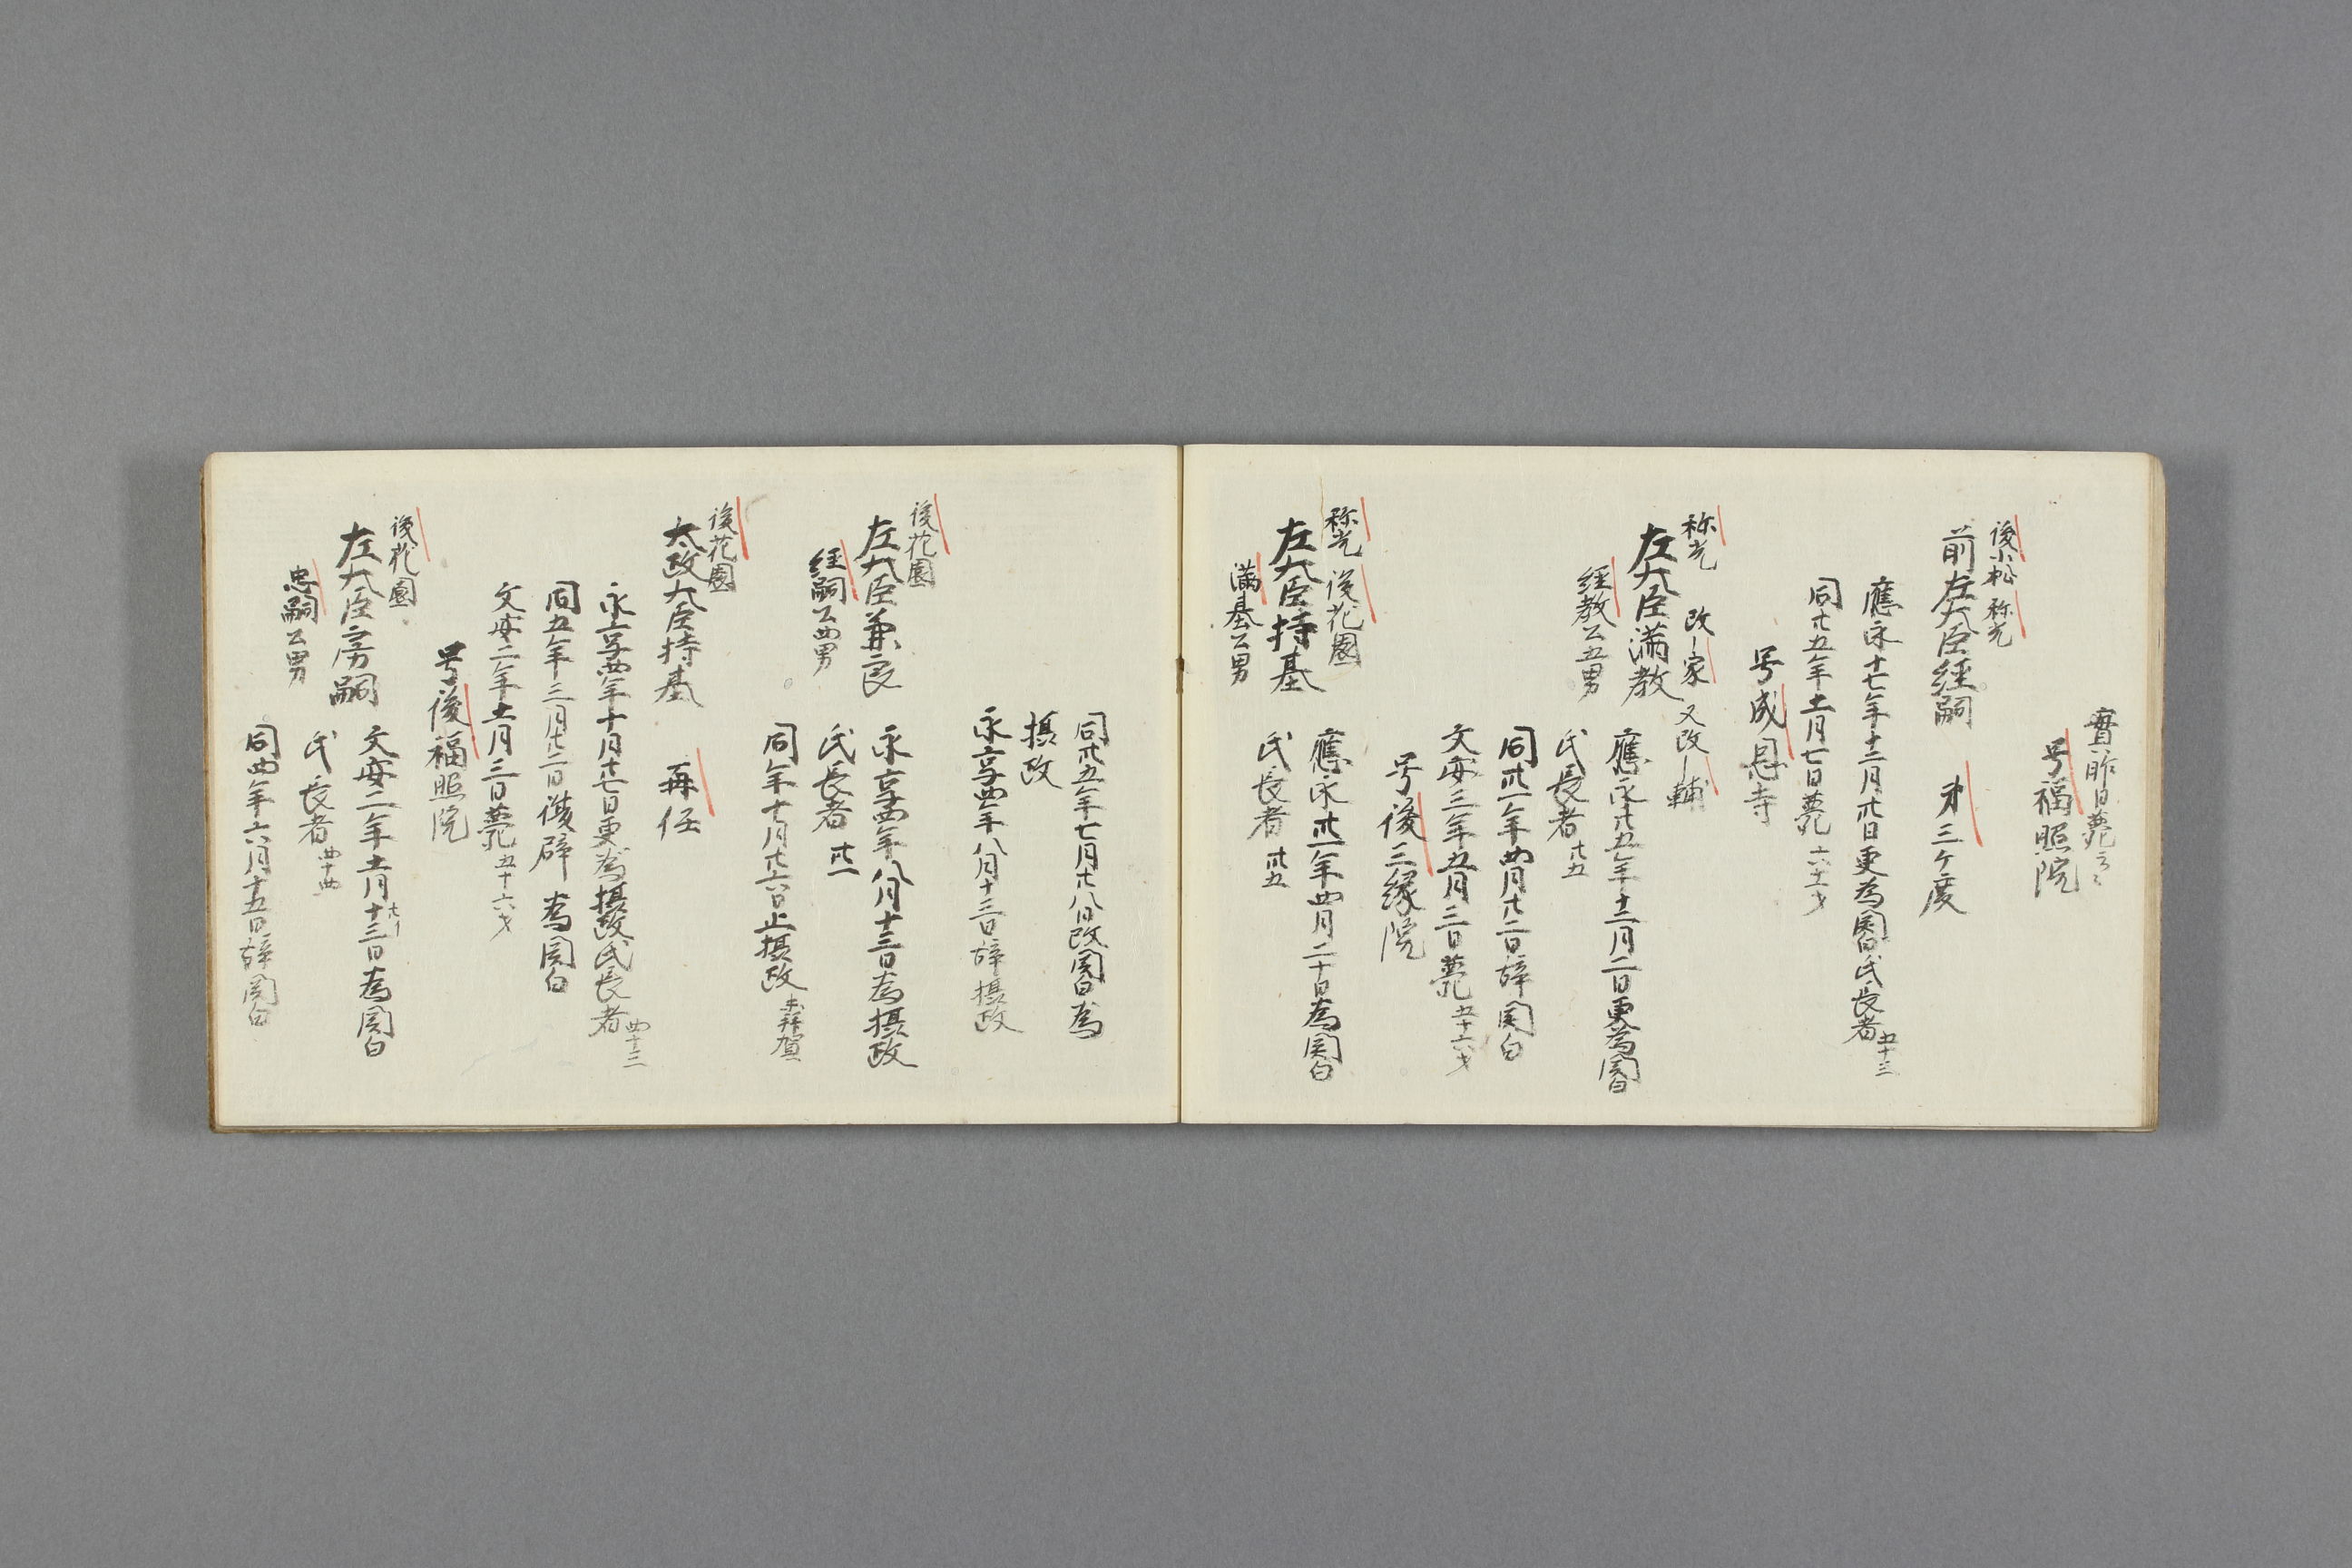 實昨日薨云々
号福照院
後小松 称光
前左大臣経嗣 才三ケ度
應永十七年十二月卅日更為関白氏長者五十三
同廿五年十一月十七日薨六十一才
号成恩寺
称光 改ー家 又改ー輔
左大臣満教
経教公五男
應永廿五年十二月二日更為関白
氏長者廿五
同卅一年四月廿日辞関白
文安三年五月三日薨五十六才
号後三縁院
称光 後花園
左大臣持基
満基公男
應永卅一年四月二十日為関白
氏長者卅五
同卅五年七月廿八日改関白為
摂政
永享四年八月十三日辞摂政
後花園
左大臣兼良
経嗣公四男
永享四年八月十三日為摂政
氏長者 卅一
同年十月廿六日止摂政未拝賀
後花園
太政大臣持基 再任
永享四年十月廿七日更為摂政氏長者四十三
同五年三月廿二日復辟 為関白
文安二年十一月三日薨五十六才
号後福照院
後花園
左大臣房嗣
忠嗣公男
文安二年十一月十三日為関白
氏長者四十四
同四年六月十五日辞関白